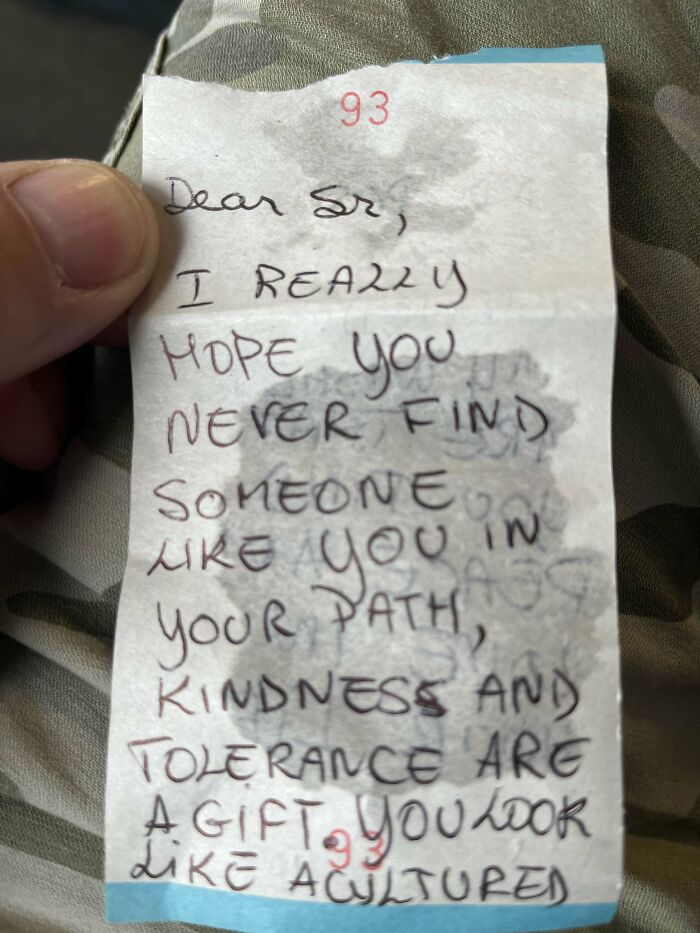 93
Dear Sr,
I REALLY
HOPE YOU
NEVER FIND
SOMEONE
LIKE YOU IN
YOUR PATH,
KINDNESS AND
TOLERANCE ARE
A GIFT. YOU LOOK
93
LIKE A CULTURED